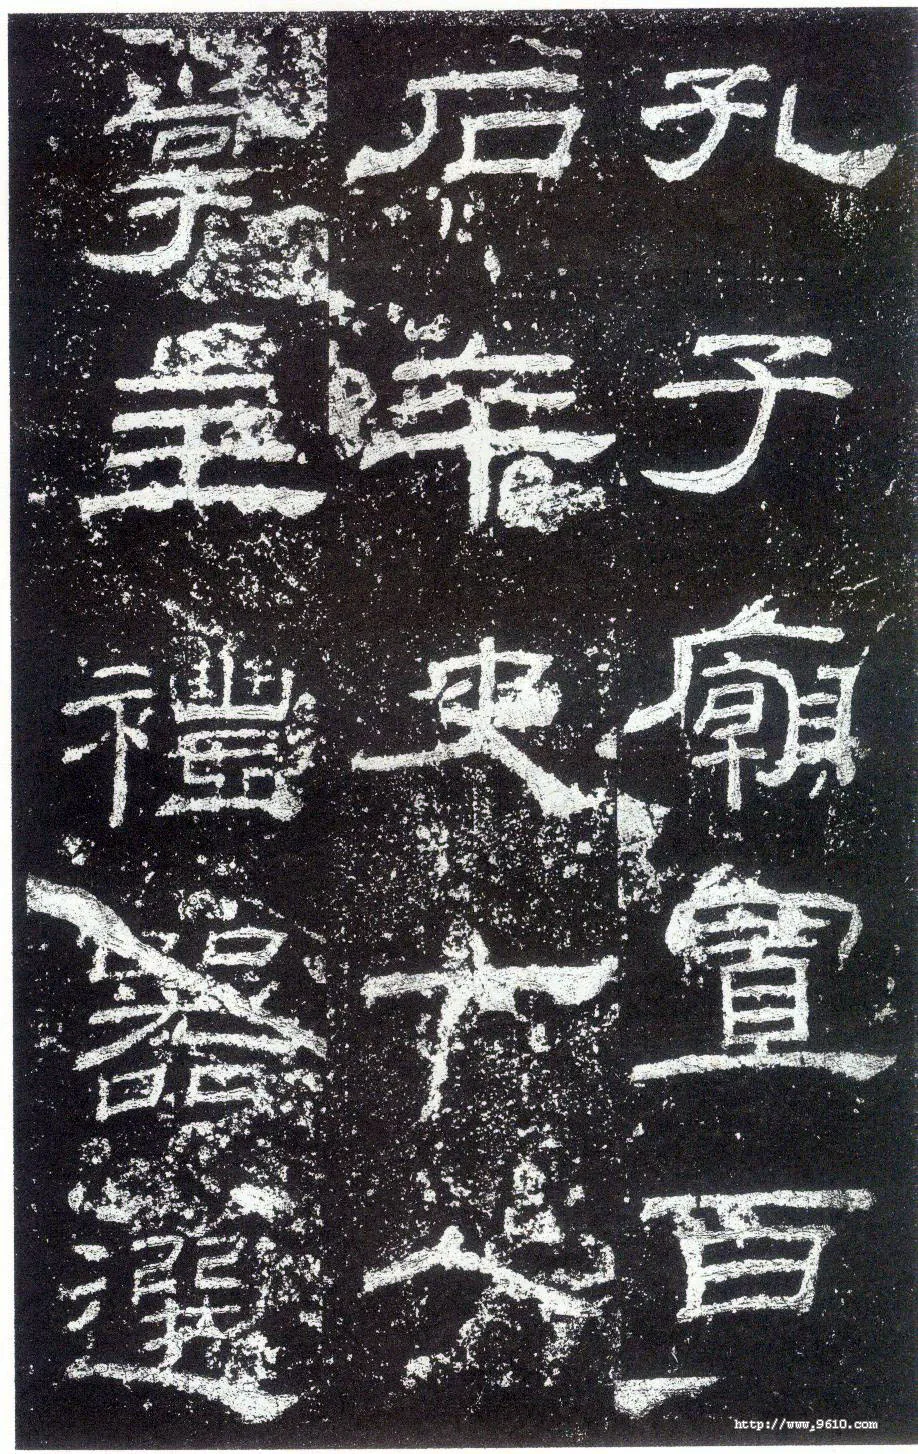 孔子廟置百
石卒史人
掌禮器選
http://www.9610.com